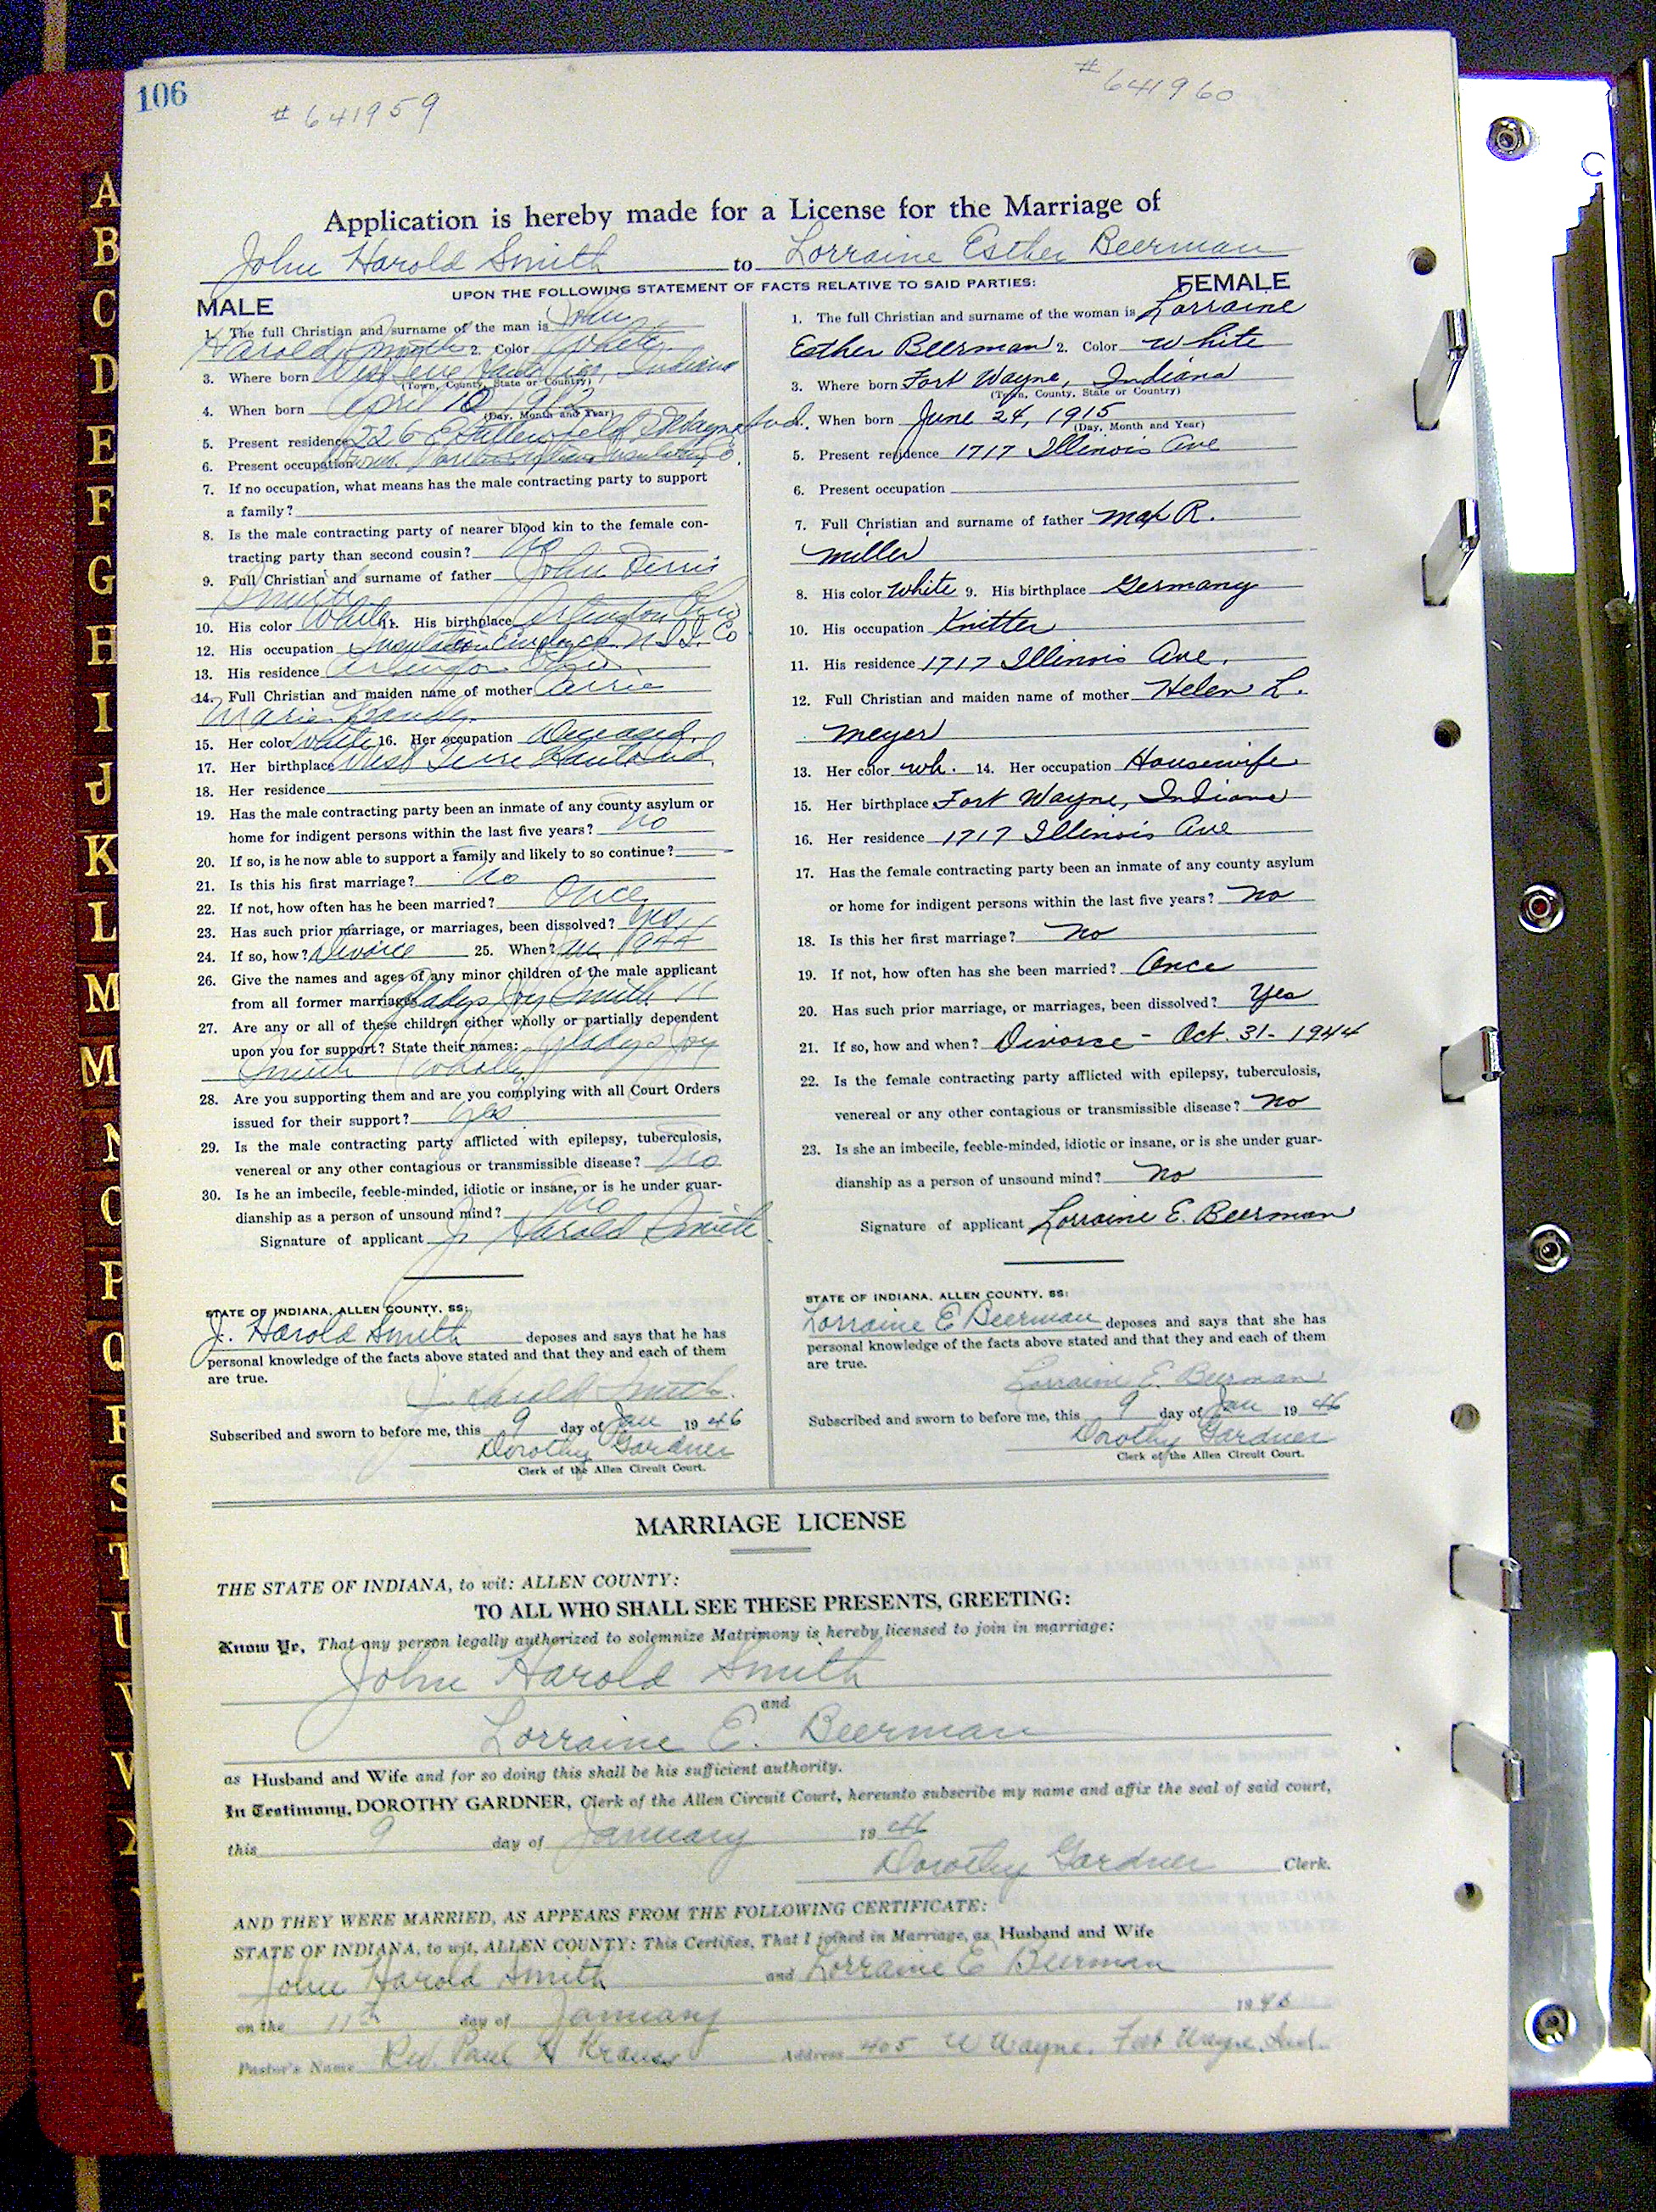 106
# 641959
# 641960
Application is hereby made for a License for the Marriage of
John Harold Smith to Lorraine Esther Beerman
UPON THE FOLLOWING STATEMENT OF FACTS RELATIVE TO SAID PARTIES:
MALE
1. The full Christian and surname of the man is John
Harold Smith 2. Color White
3. Where born West Terre Haute Vigo, Indiana
(Town, County, State or Country)
4. When born April 10 1912
(Day, Month and Year)
5. Present residence 226 E Ft Wayne Ind.
6. Present occupation
7. If no occupation, what means has the male contracting party to support
a family?
8. Is the male contracting party of nearer blood kin to the female con-
tracting party than second cousin? No
9. Full Christian and surname of father John
Smith
10. His color White 11. His birthplace Arlington
12. His occupation Insulation Employee N.I.I. Co
13. His residence Arlington
14. Full Christian and maiden name of mother
Marie
15. Her color White 16. Her occupation Deceased.
17. Her birthplace West Terre Haute Ind.
18. Her residence
19. Has the male contracting party been an inmate of any county asylum or
home for indigent persons within the last five years? No
20. If so, is he now able to support a family and likely to so continue? —
21. Is this his first marriage? No
22. If not, how often has he been married? Once
23. Has such prior marriage, or marriages, been dissolved? Yes
24. If so, how? Divorce 25. When? 1944
26. Give the names and ages of any minor children of the male applicant
from all former marriages Gladys Joy Smith 11
27. Are any or all of these children either wholly or partially dependent
upon you for support? State their names: Gladys Joy
Smith (Wholly)
28. Are you supporting them and are you complying with all Court Orders
issued for their support? Yes
29. Is the male contracting party afflicted with epilepsy, tuberculosis,
venereal or any other contagious or transmissible disease? No
30. Is he an imbecile, feeble-minded, idiotic or insane, or is he under guar-
dianship as a person of unsound mind? No
Signature of applicant J. Harold Smith
STATE OF INDIANA, ALLEN COUNTY, SS:
J. Harold Smith deposes and says that he has
personal knowledge of the facts above stated and that they and each of them
are true.
J. Harold Smith.
Subscribed and sworn to before me, this 9 day of Jan 1946
Dorothy Gardner
Clerk of the Allen Circuit Court.
FEMALE
1. The full Christian and surname of the woman is Lorraine
Esther Beerman 2. Color White
3. Where born Fort Wayne, Indiana
(Town, County, State or Country)
When born June 24, 1915
(Day, Month and Year)
5. Present residence 1717 Illinois Ave
6. Present occupation
7. Full Christian and surname of father Max R.
Miller
8. His color White 9. His birthplace Germany
10. His occupation Knitter
11. His residence 1717 Illinois Ave.
12. Full Christian and maiden name of mother Helen L.
Meyer
13. Her color wh. 14. Her occupation Housewife
15. Her birthplace Fort Wayne, Indiana
16. Her residence 1717 Illinois Ave
17. Has the female contracting party been an inmate of any county asylum
or home for indigent persons within the last five years? No
18. Is this her first marriage? No
19. If not, how often has she been married? Once
20. Has such prior marriage, or marriages, been dissolved? Yes
21. If so, how and when? Divorce - Oct. 31 - 1944
22. Is the female contracting party afflicted with epilepsy, tuberculosis,
venereal or any other contagious or transmissible disease? No
23. Is she an imbecile, feeble-minded, idiotic or insane, or is she under guar-
dianship as a person of unsound mind? No
Signature of applicant Lorraine E. Beerman
STATE OF INDIANA, ALLEN COUNTY, SS:
Lorraine E Beerman deposes and says that she has
personal knowledge of the facts above stated and that they and each of them
are true.
Lorraine E. Beerman
Subscribed and sworn to before me, this 9 day of Jan 1946
Dorothy Gardner
Clerk of the Allen Circuit Court.
MARRIAGE LICENSE
THE STATE OF INDIANA, to wit: ALLEN COUNTY:
TO ALL WHO SHALL SEE THESE PRESENTS, GREETING:
Know Ye, That any person legally authorized to solemnize Matrimony is hereby licensed to join in marriage:
John Harold Smith
and
Lorraine E. Beerman
as Husband and Wife and for so doing this shall be his sufficient authority.
In Testimony, DOROTHY GARDNER, Clerk of the Allen Circuit Court, hereunto subscribe my name and affix the seal of said court,
this 9 day of January 1946
Dorothy Gardner Clerk.
AND THEY WERE MARRIED, AS APPEARS FROM THE FOLLOWING CERTIFICATE:
STATE OF INDIANA, to wit, ALLEN COUNTY: This Certifies, That I joined in Marriage, as Husband and Wife
John Harold Smith and Lorraine E Beerman
on the 11th day of January 1946
Pastor's Name Rev. Paul H Krauss Address 405 W Wayne, Fort Wayne, Ind.
A
B
C
D
E
F
G
H
I
J
K
L
M
M
N
O
P
Q
R
S
T
U
V
W
X
Y
Z